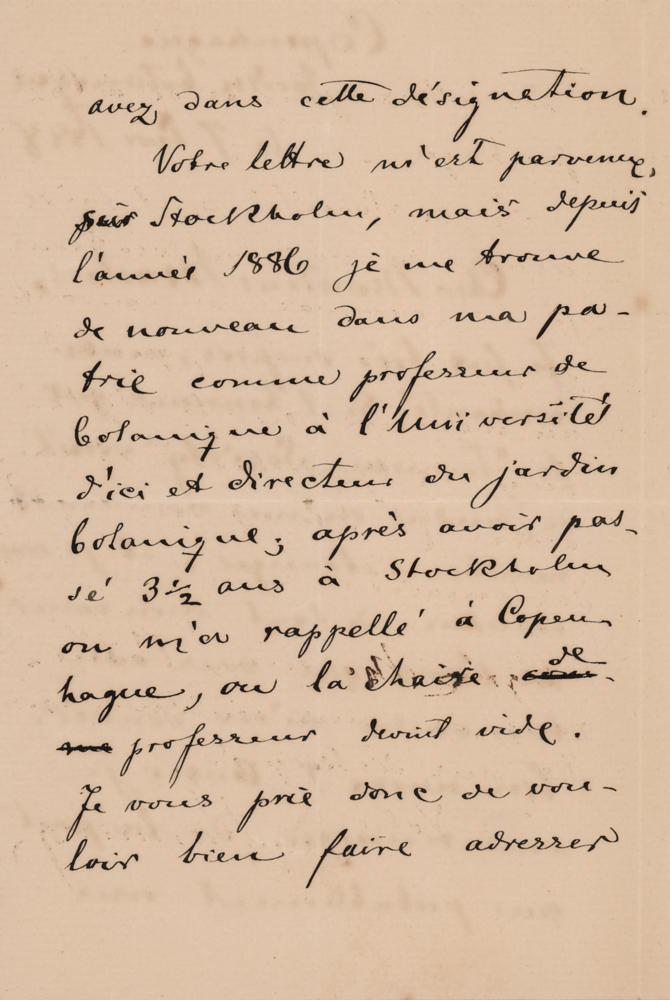 avez dans cette désignation.
Votre lettre m'est parvenue,
Stockholm, mais depuis
l'année 1886 je me trouve
de nouveau dans ma pa-
trie comme professeur de
botanique à l'Université
d'ici et directeur du jardin
botanique; après avoir pas-
sé 3½ ans à Stockholm
on m'a rappellé à Copen
hague, ou la chaire de
professeur devint vide.
Je vous prie donc de vou-
loir bien faire adresser